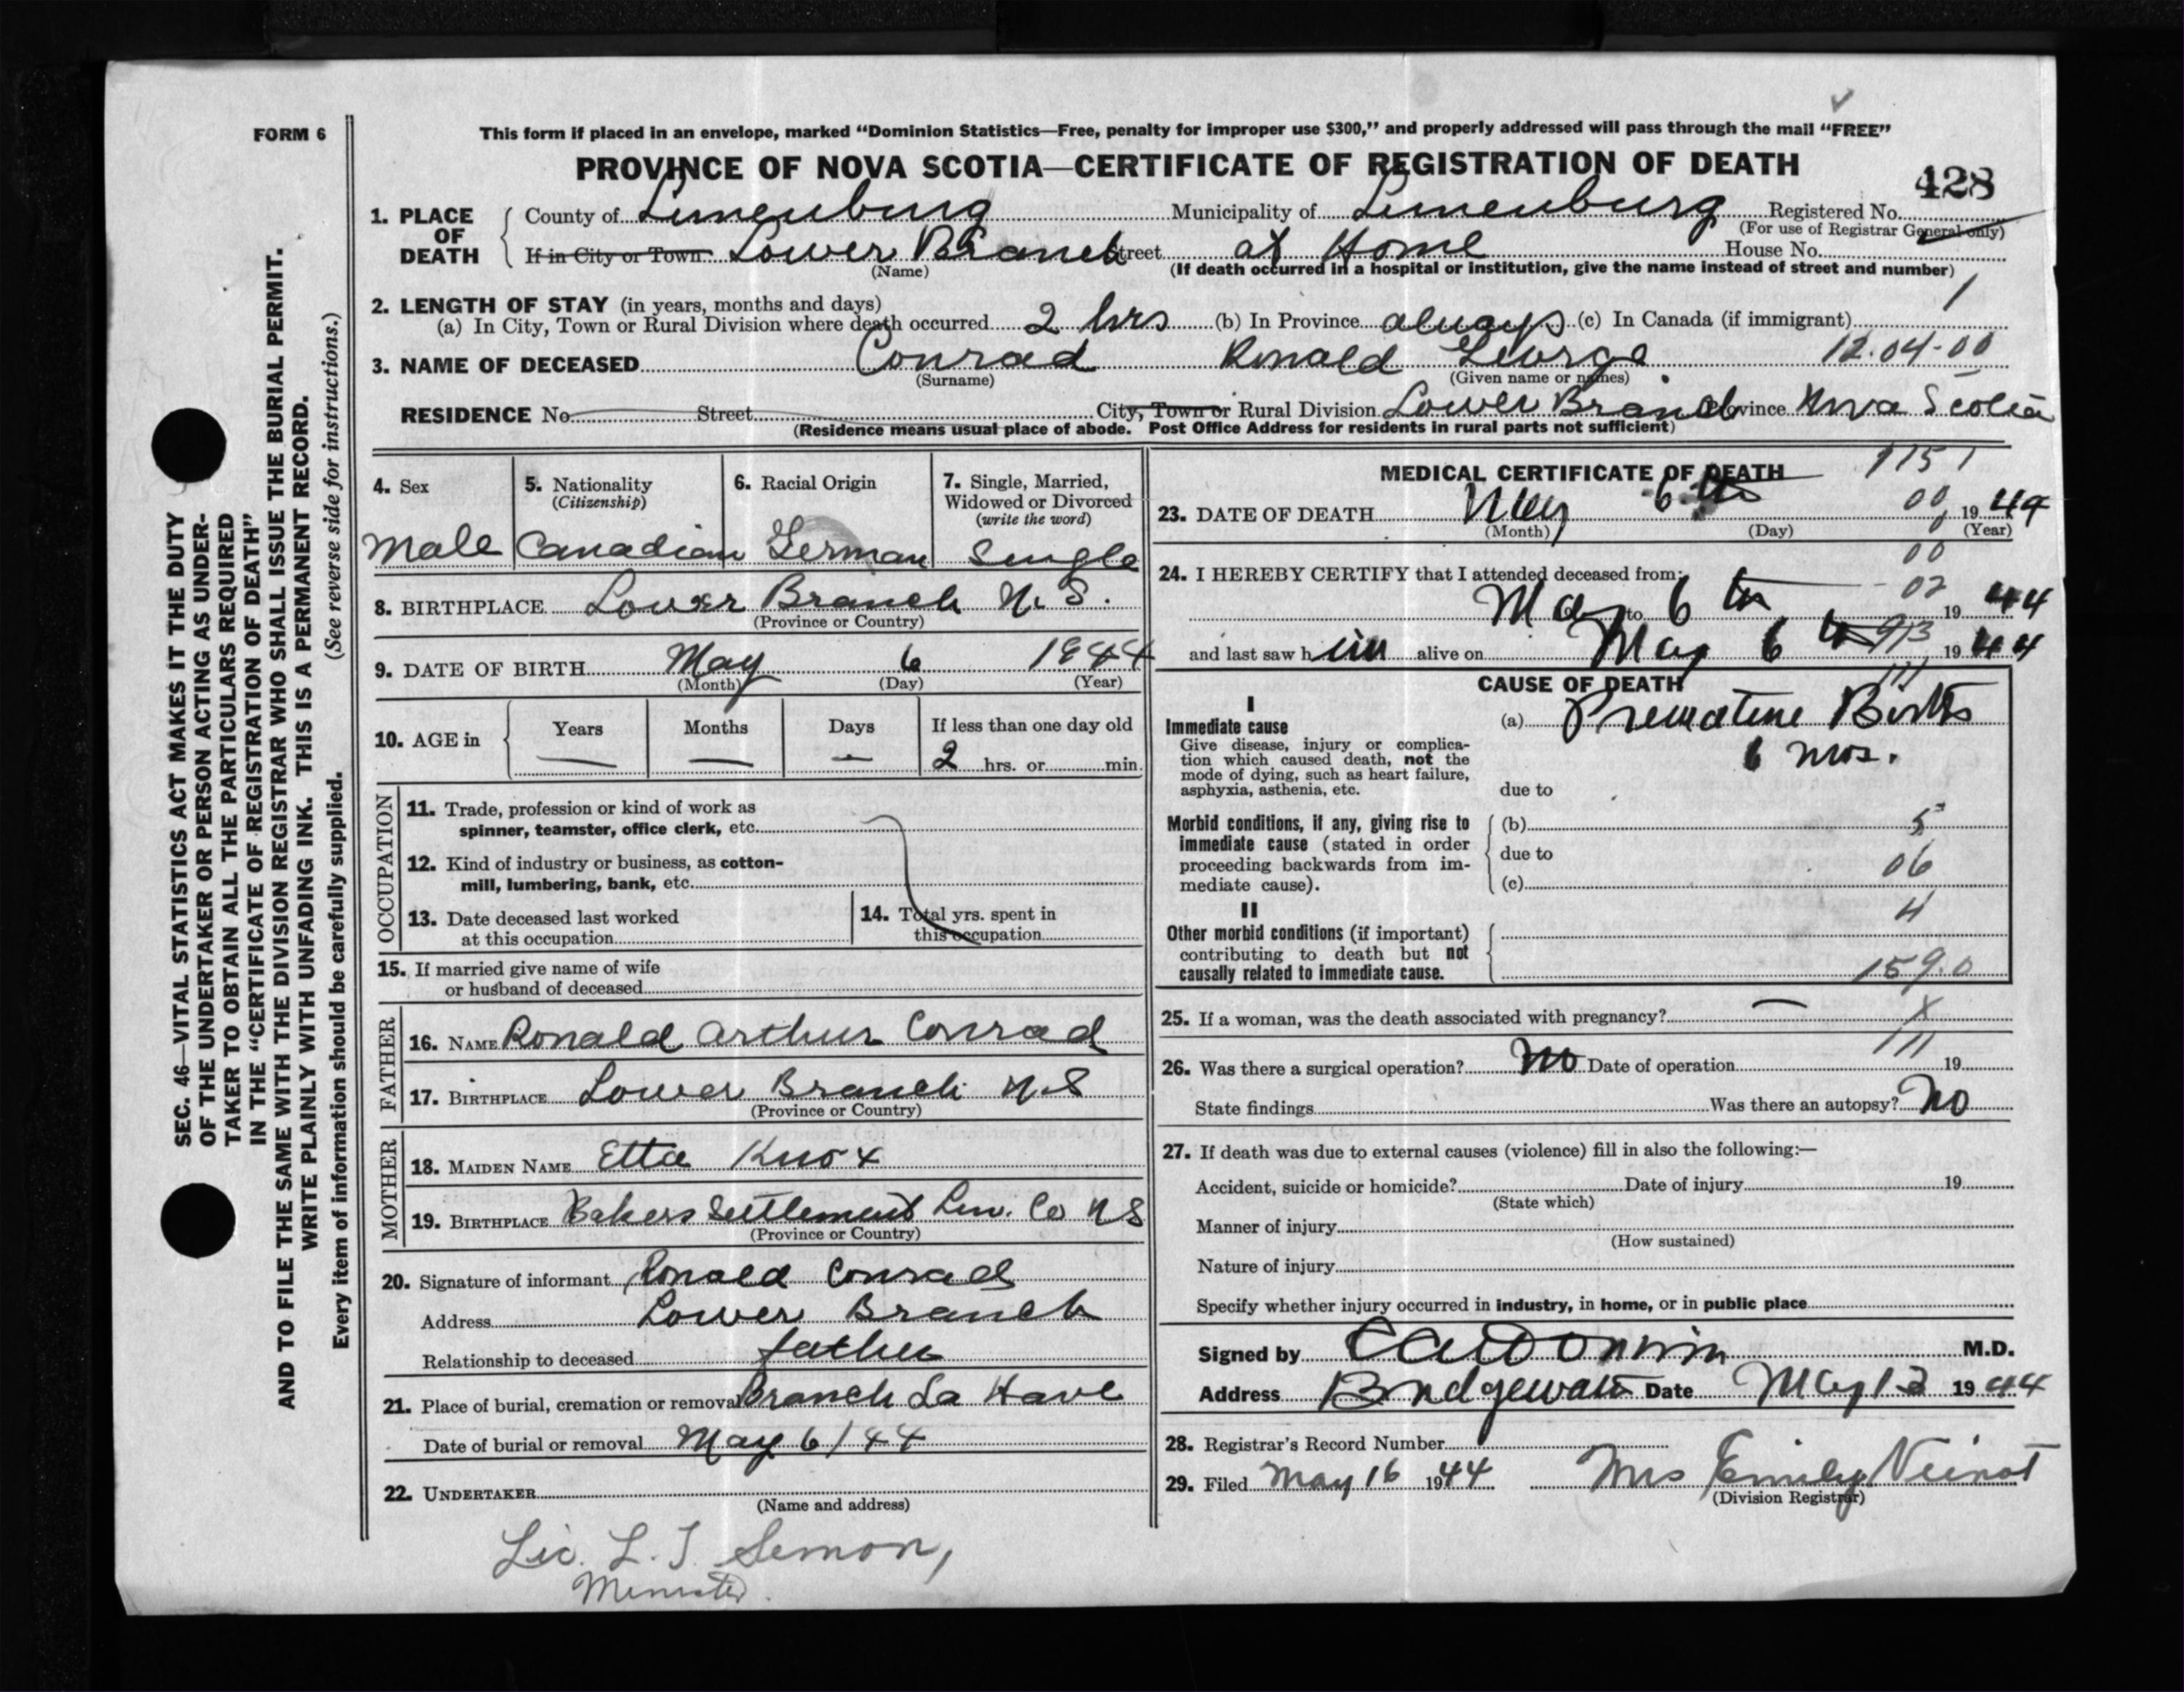 FORM 6
This form if placed in an envelope, marked “Dominion Statistics—Free, penalty for improper use $300,” and properly addressed will pass through the mail “FREE”
PROVINCE OF NOVA SCOTIA—CERTIFICATE OF REGISTRATION OF DEATH
428
1. PLACE OF DEATH
County of Lunenburg Municipality of Lunenburg Registered No.
(For use of Registrar General only)
If in City or Town Lower Branch Street at Home House No.
(Name) (If death occurred in a hospital or institution, give the name instead of street and number)
2. LENGTH OF STAY (in years, months and days) 1
(a) In City, Town or Rural Division where death occurred 2 hrs (b) In Province always (c) In Canada (if immigrant)
3. NAME OF DECEASED Conrad Ronald George 12.04-00
(Surname) (Given name or names)
RESIDENCE No. Street City, Town or Rural Division Lower Branch Province Nova Scotia
(Residence means usual place of abode. Post Office Address for residents in rural parts not sufficient)
4. Sex
Male
5. Nationality
(Citizenship)
Canadian
6. Racial Origin
German
7. Single, Married,
Widowed or Divorced
(write the word)
Single
8. BIRTHPLACE Lower Branch N.S.
(Province or Country)
9. DATE OF BIRTH May 6 1944
(Month) (Day) (Year)
10. AGE in
Years Months Days If less than one day old
— — — 2 hrs. or min.
OCCUPATION
11. Trade, profession or kind of work as
spinner, teamster, office clerk, etc.
12. Kind of industry or business, as cotton-
mill, lumbering, bank, etc.
13. Date deceased last worked
at this occupation
14. Total yrs. spent in
this occupation
15. If married give name of wife
or husband of deceased
FATHER
16. NAME Ronald Arthur Conrad
17. BIRTHPLACE Lower Branch N.S
(Province or Country)
MOTHER
18. MAIDEN NAME Etta Knox
19. BIRTHPLACE Bakers Settlement Lun. Co N S
(Province or Country)
20. Signature of informant Ronald Conrad
Address Lower Branch
Relationship to deceased father
21. Place of burial, cremation or removal Branch La Have
Date of burial or removal May 6/44
22. UNDERTAKER
(Name and address)
Lic. L. T. Semon,
Minister.
MEDICAL CERTIFICATE OF DEATH 1151
23. DATE OF DEATH May 6 th 00 1944
(Month) (Day) (Year)
00
24. I HEREBY CERTIFY that I attended deceased from:
02
May to 6 th 19 44
and last saw him alive on May 6 th 913 19 44
111
CAUSE OF DEATH
I
Immediate cause
Give disease, injury or complica-
tion which caused death, not the
mode of dying, such as heart failure,
asphyxia, asthenia, etc.
(a) Premature Birth
6 mos.
due to
Morbid conditions, if any, giving rise to
immediate cause (stated in order
proceeding backwards from im-
mediate cause).
(b) 5
due to
06
(c)
4
II
Other morbid conditions (if important)
contributing to death but not
causally related to immediate cause.
159.0
25. If a woman, was the death associated with pregnancy? — X
111
26. Was there a surgical operation? No Date of operation 19
State findings Was there an autopsy? No
27. If death was due to external causes (violence) fill in also the following:—
Accident, suicide or homicide? Date of injury 19
(State which)
Manner of injury
(How sustained)
Nature of injury
Specify whether injury occurred in industry, in home, or in public place
Signed by M.D.
Address Bridgewater Date May 13 1944
28. Registrar's Record Number
29. Filed May 16 1944 Mrs Emily Veinot
(Division Registrar)
SEC. 46—VITAL STATISTICS ACT MAKES IT THE DUTY
OF THE UNDERTAKER OR PERSON ACTING AS UNDER-
TAKER TO OBTAIN ALL THE PARTICULARS REQUIRED
IN THE “CERTIFICATE OF REGISTRATION OF DEATH”
AND TO FILE THE SAME WITH THE DIVISION REGISTRAR WHO SHALL ISSUE THE BURIAL PERMIT.
WRITE PLAINLY WITH UNFADING INK. THIS IS A PERMANENT RECORD.
Every item of information should be carefully supplied. (See reverse side for instructions.)